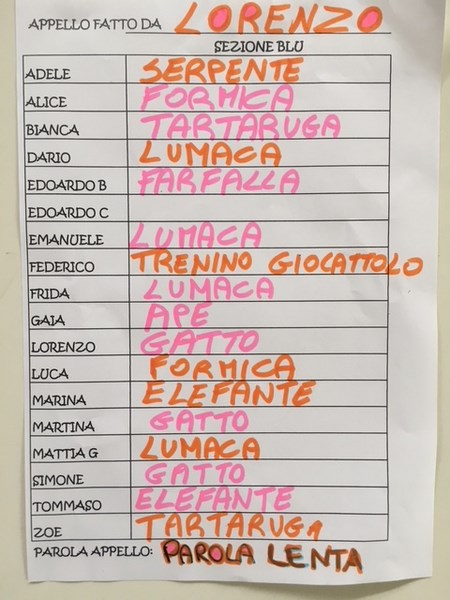 APPELLO FATTO DA LORENZO
SEZIONE BLU
ADELE SERPENTE
ALICE FORMICA
BIANCA TARTARUGA
DARIO LUMACA
EDOARDO B FARFALLA
EDOARDO C
EMANUELE LUMACA
FEDERICO TRENINO GIOCATTOLO
FRIDA LUMACA
GAIA APE
LORENZO GATTO
LUCA FORMICA
MARINA ELEFANTE
MARTINA GATTO
MATTIA G LUMACA
SIMONE GATTO
TOMMASO ELEFANTE
ZOE TARTARUGA
PAROLA APPELLO: PAROLA LENTA